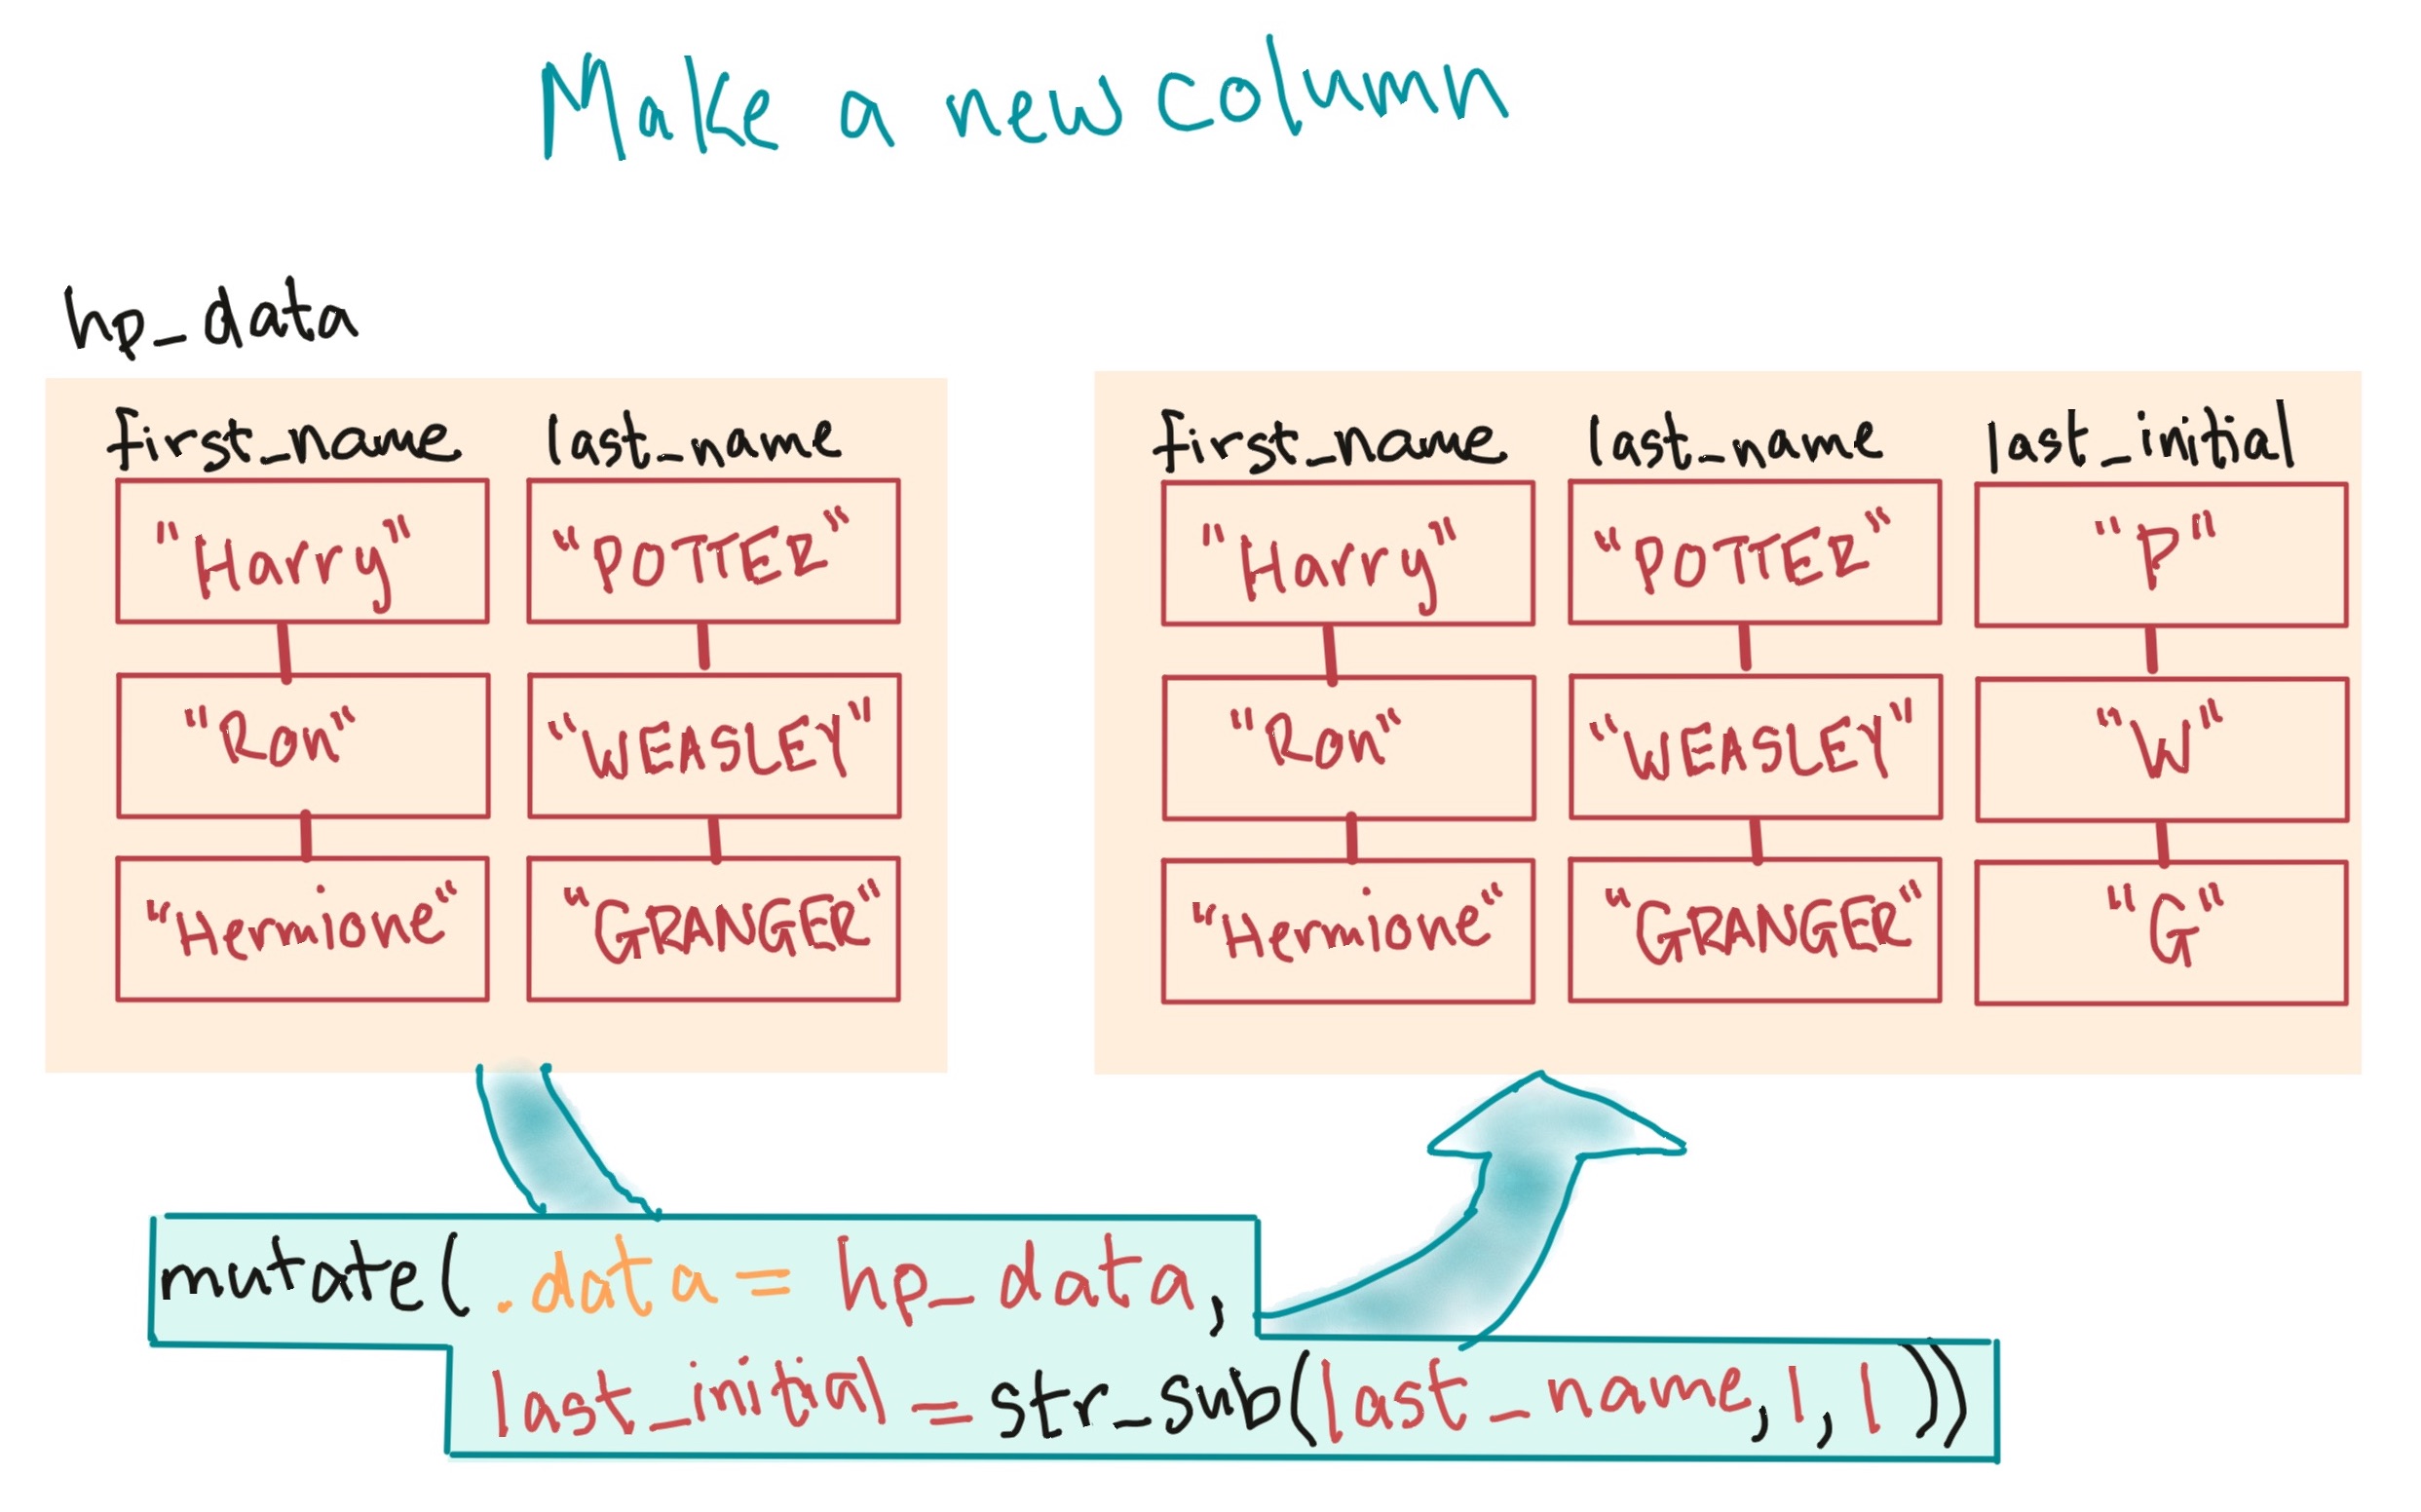 Make a new column
hp_data
first_name last_name
"Harry" "POTTER"
"Ron" "WEASLEY"
"Hermione" "GRANGER"
first_name last_name last_initial
"Harry" "POTTER" "P"
"Ron" "WEASLEY" "W"
"Hermione" "GRANGER" "G"
mutate(.data = hp_data,
last_initial = str_sub(last_name,1,1))